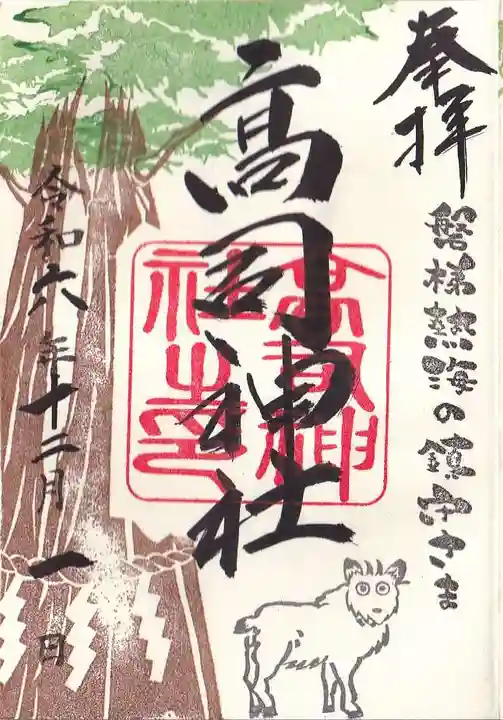 奉拝
磐梯熱海の鎮守さま
高司神社
高司神
社之印
令和六年十二月一日